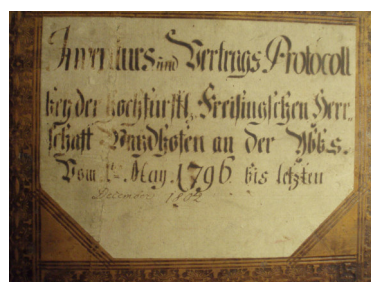 Inventurs und Vertrags Protocoll
bey der hochfürstl. Freisingischen Herr¬
schaft Waydhofen an der Ybbs.
Vom 1t May. 1796 bis letzten
December 1802